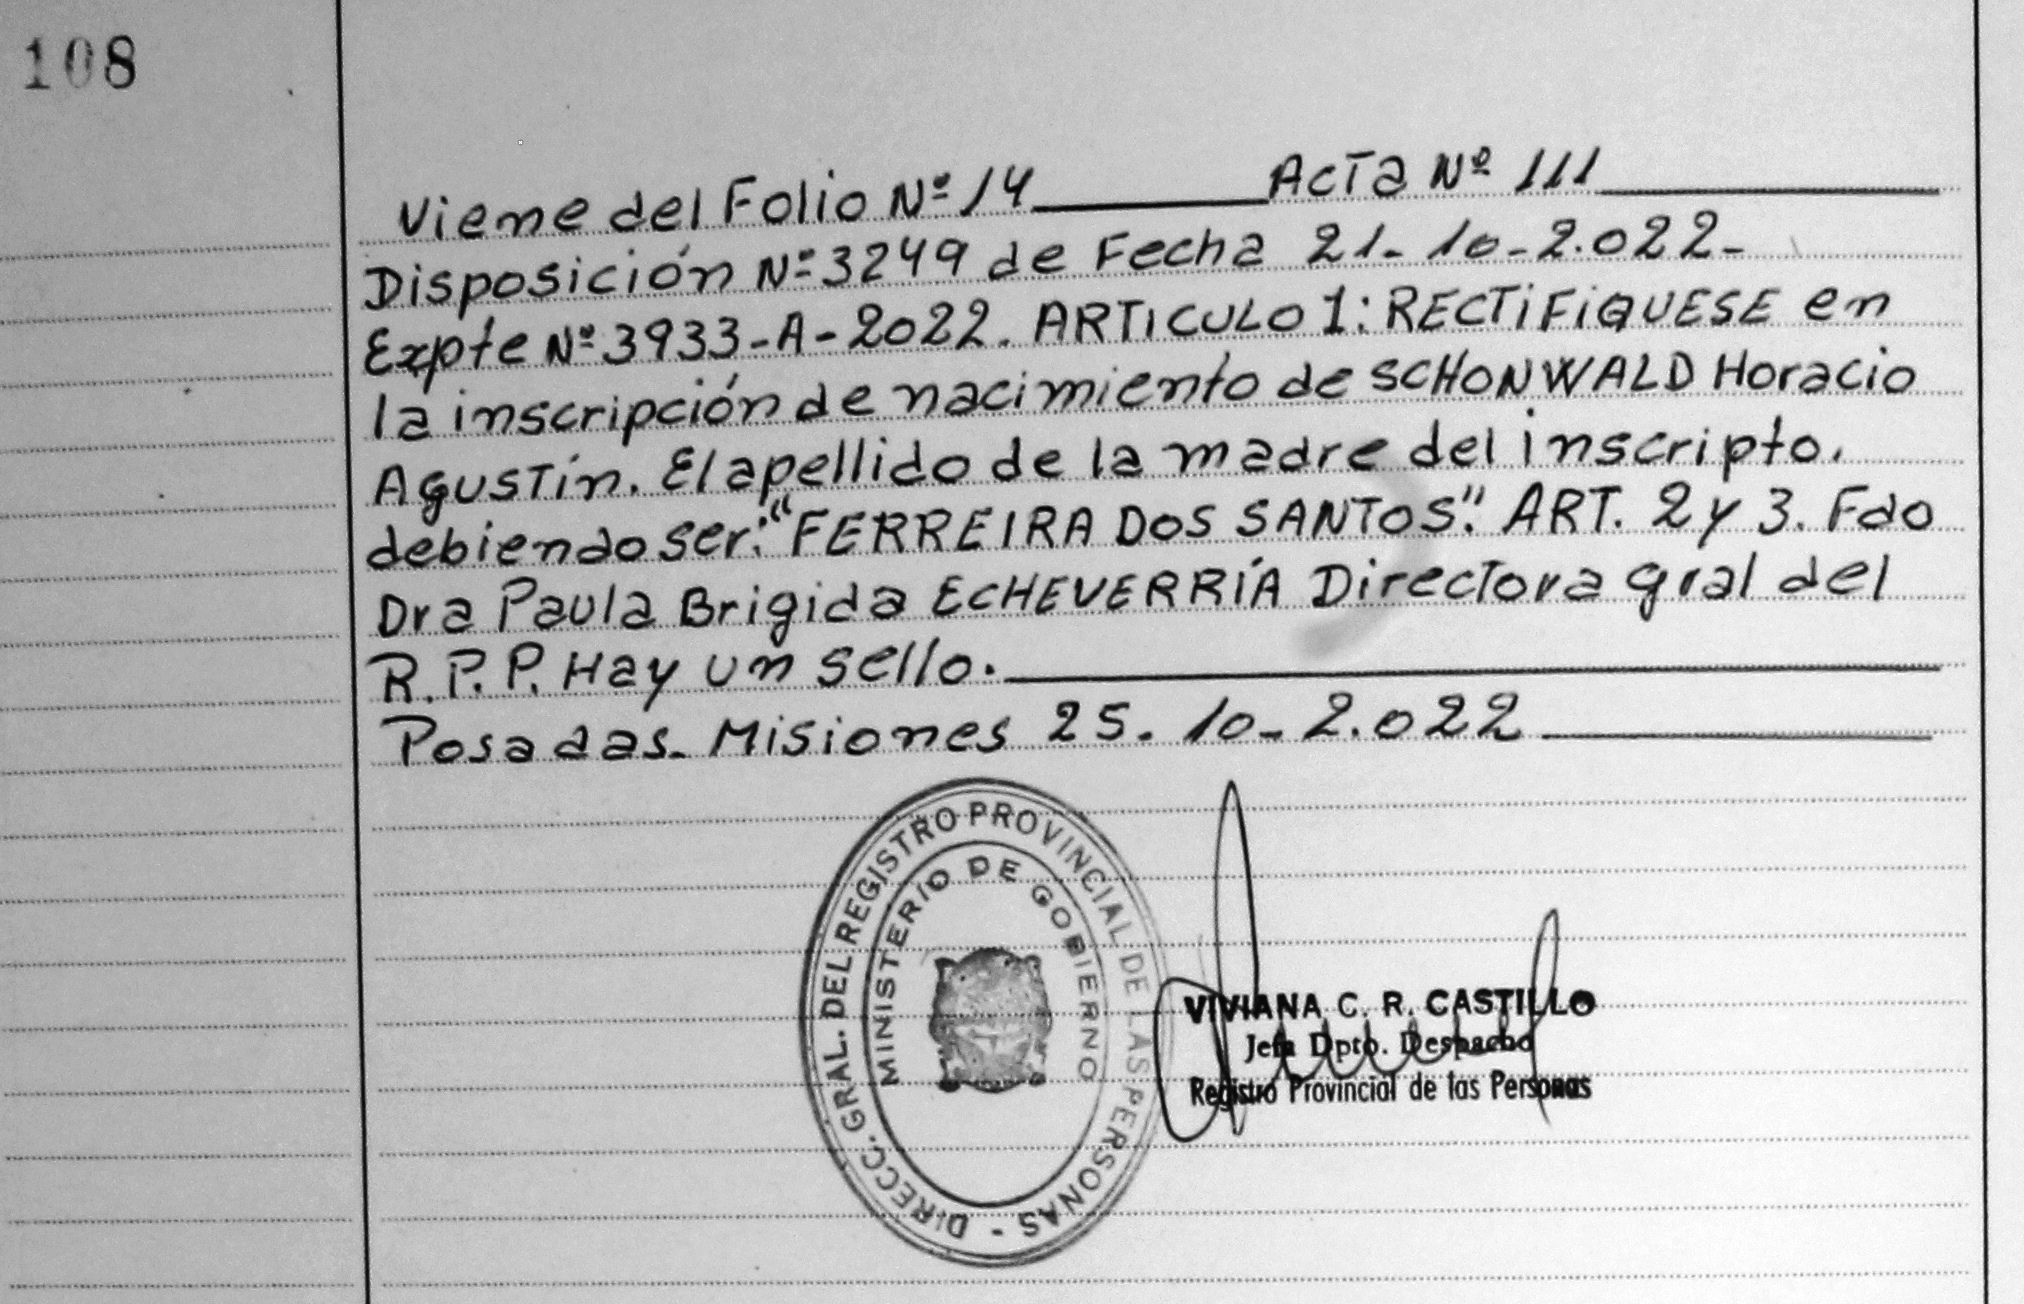 108
Viene del Folio Nº 14 Acta Nº 111
Disposición Nº 3249 de Fecha 21-10-2.022-
Expte Nº 3933-A-2022. ARTICULO 1: RECTIFIQUESE en
la inscripción de nacimiento de SCHONWALD Horacio
Agustín. El apellido de la madre del inscripto.
debiendo ser: "FERREIRA DOS SANTOS". ART. 2 y 3. Fdo
Dra Paula Brigida ECHEVERRÍA Directora gral del
R.P.P. Hay un sello.
Posadas- Misiones 25-10-2.022
DIRECC. GRAL. DEL REGISTRO PROVINCIAL DE LAS PERSONAS -
MINISTERIO DE GOBIERNO
VIVIANA C. R. CASTILLO
Jefa Dpto. Despacho
Registro Provincial de las Personas